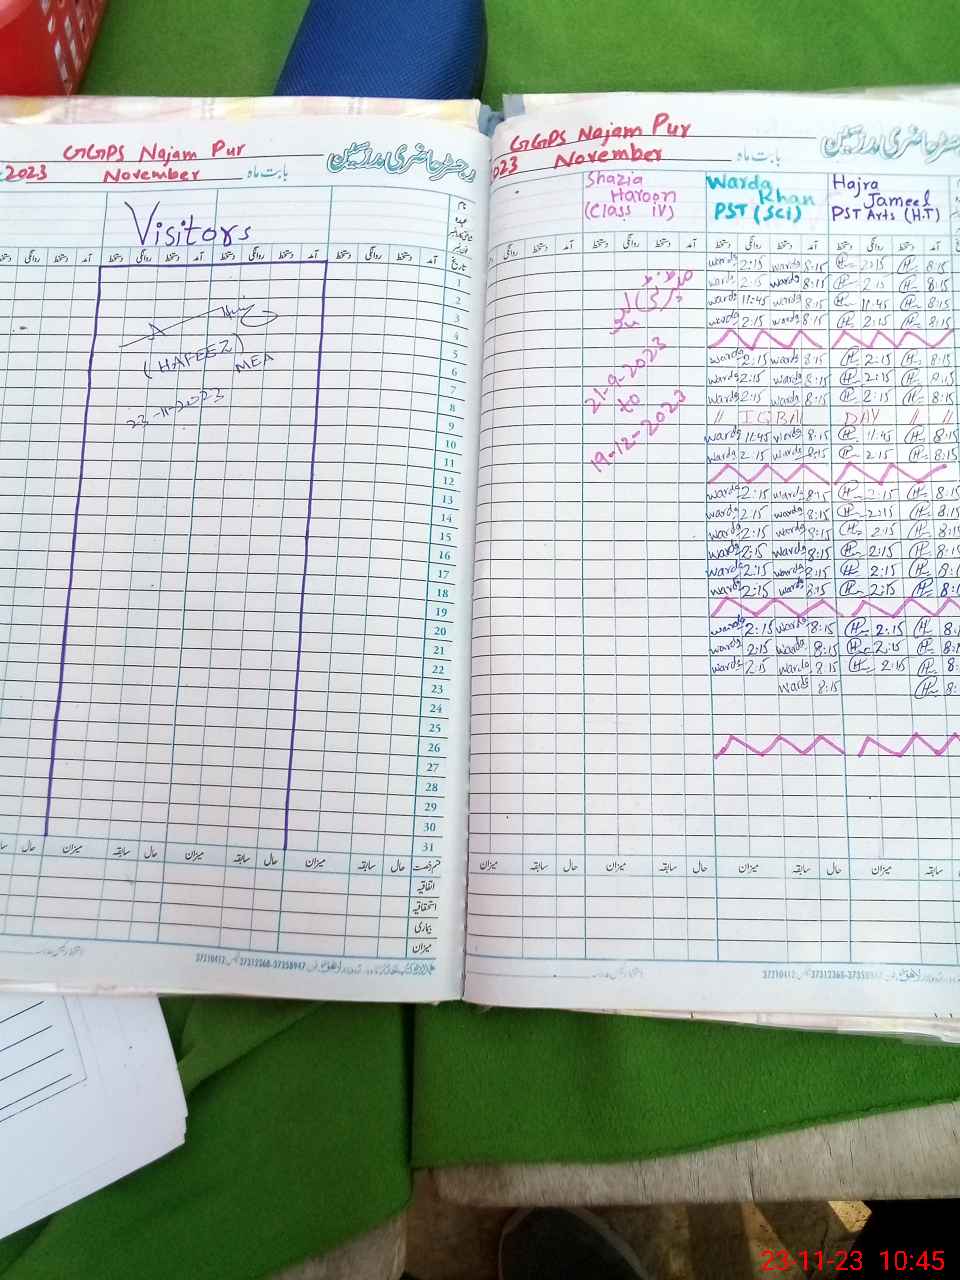 GGPS Najam Pur
رجسٹر حاضری مدرسین
2023 November بابت ماہ
Visitors
دستخط روانگی دستخط آمد دستخط روانگی دستخط آمد دستخط روانگی دستخط آمد تاریخ
(HAFEEZ)
MEA
23-11-2023
1
2
3
4
5
6
7
8
9
10
11
12
13
14
15
16
17
18
19
20
21
22
23
24
25
26
27
28
29
30
31
حال میزان سابقہ حال میزان سابقہ حال میزان سابقہ حال
اتفاقیہ
استحقاقیہ
بیماری
میزان
37310412 37312368-37358947
GGPS Najam Pur
023 November بابت ماہ
Shazia Haroon (Class IV)
Warda Khan PST (Sci)
Hajra Jameel PST Arts (H.T)
روانگی دستخط آمد دستخط روانگی دستخط آمد دستخط روانگی دستخط آمد دستخط روانگی دستخط آمد
21-9-2023
to
19-12-2023
warda 2:15 warda 8:15 H 2:15 H 8:15
warda 2:15 warda 8:15 H 2:15 H 8:15
warda 11:45 warda 8:15 H 11:45 H 8:15
warda 2:15 warda 8:15 H 2:15 H 8:15
warda 2:15 warda 8:15 H 2:15 H 8:15
warda 2:15 warda 8:15 H 2:15 H 8:15
warda 2:15 warda 8:15 H 2:15 H 8:15
// IQBAL DAY // //
warda 11:45 warda 8:15 H 11:45 H 8:15
warda 2:15 warda 8:15 H 2:15 H 8:15
warda 2:15 warda 8:15 H 2:15 H 8:15
warda 2:15 warda 8:15 H 2:15 H 8:15
warda 2:15 warda 8:15 H 2:15 H 8:15
warda 2:15 warda 8:15 H 2:15 H 8:15
warda 2:15 warda 8:15 H 2:15 H 8:1
warda 2:15 warda 8:15 H 2:15 H 8:1
warda 2:15 warda 8:15 H 2:15 H 8:
warda 2:15 warda 8:15 H 2:15 H 8:1
warda 2:15 warda 8:15 H 2:15 H 8:
warda 8:15 H 8:
میزان سابقہ حال میزان سابقہ حال میزان سابقہ حال میزان سابقہ
37310412 37312368-37358947
23-11-23 10:45